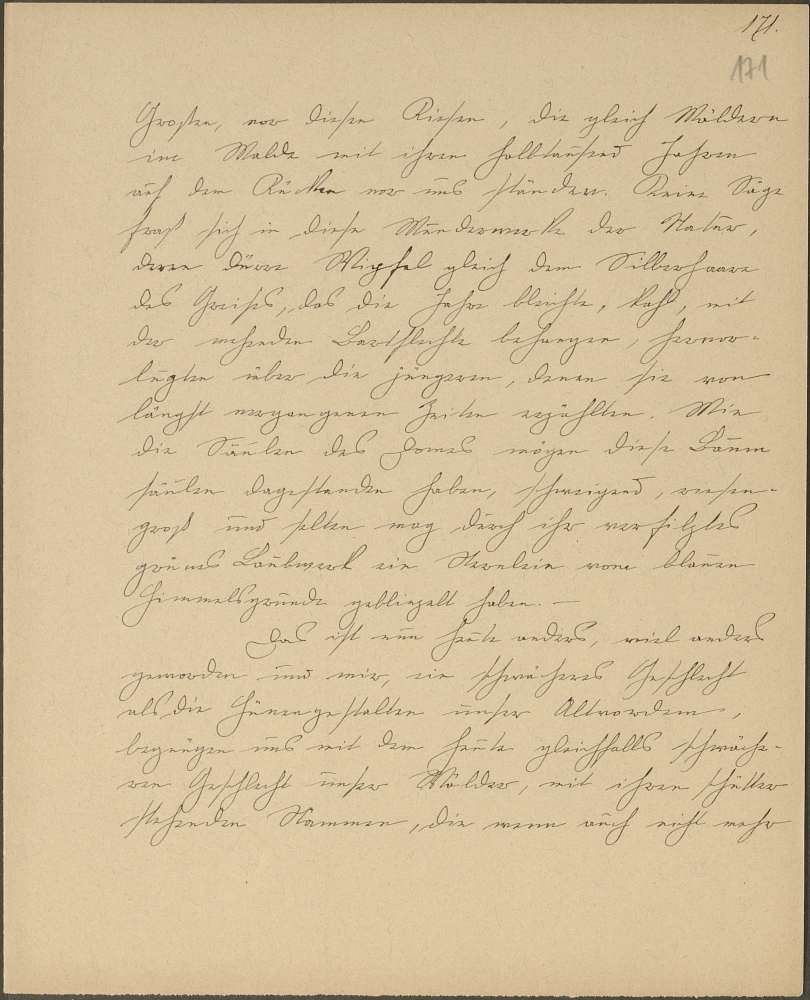 171.
171
Großen, vor diesen Riesen, die gleich Wäldern
im Walde mit ihren halbtausend Jahren
auf dem Rücken vor uns ständen. Keine Säge
fraß sich in diese Wunderwerke der Natur,
deren dürre Wipfel gleich dem Silberhaare
des Greises, das die Jahre bleichte, kahl, mit
der wehenden Bartflechte behangen, hervor-
lugten über die jüngeren, denen sie von
längst vergangenen Zeiten erzählten. Wie
die Säulen des Domes mögen diese Baum
säulen dagestanden haben, schweigend, riesen-
groß und selten mag durch ihr verfilztes
grünes Laubwerk ein Sternlein vom blauen
Himmelsgrunde geblinzelt haben. —
Das ist nun heute anders, viel anders
geworden und wir, ein schwächeres Geschlecht
als die Hünengestalten unser Altvordern,
begnügen uns mit dem heute gleichfalls schwäche-
ren Geschlecht unser Wälder, mit ihren schütter
stehenden Stammen, die wenn auch nicht mehr